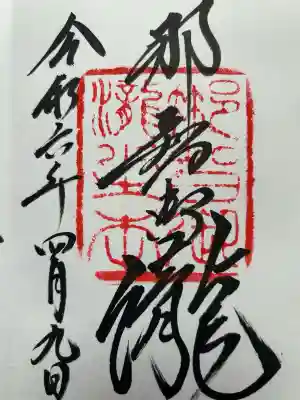 那智御瀧
令和六年四月九日